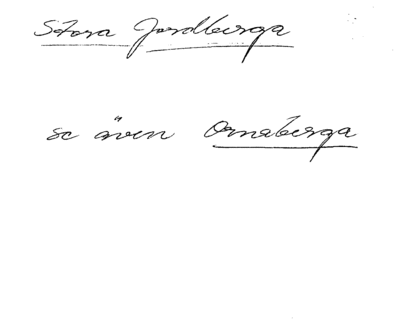 Stora Jordberga
se även Ornaberga